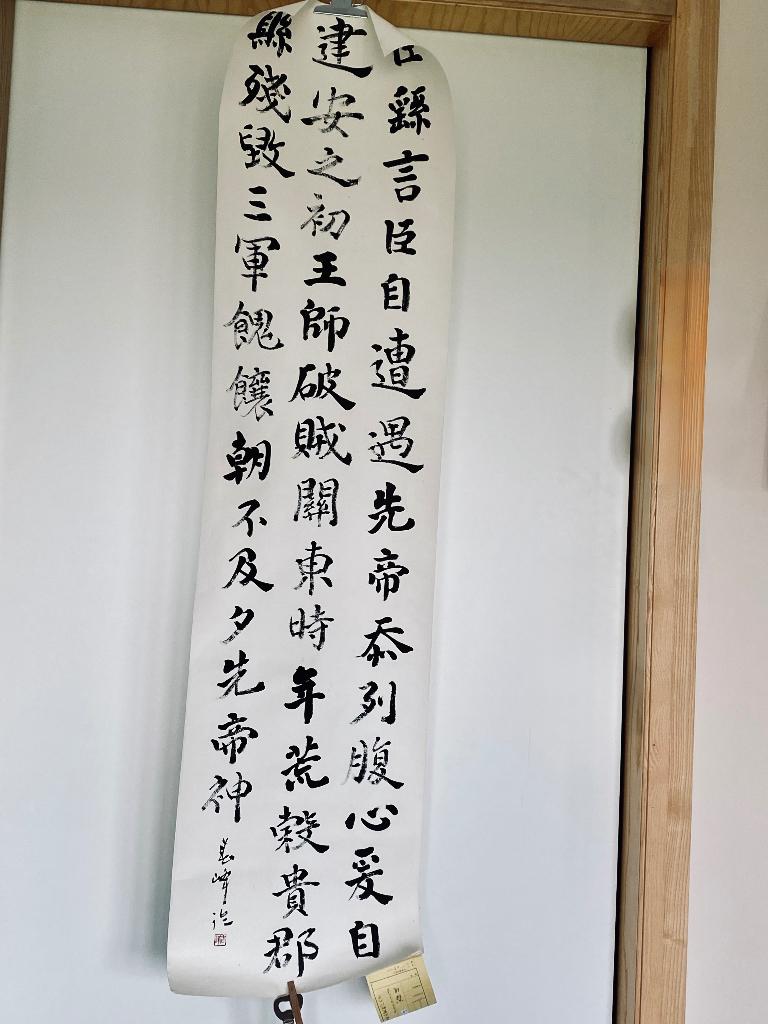 臣繇言臣自遭遇先帝忝列腹心爰自
建安之初王師破賊關東時年荒穀貴郡
縣殘毀三軍餽饟朝不及夕先帝神